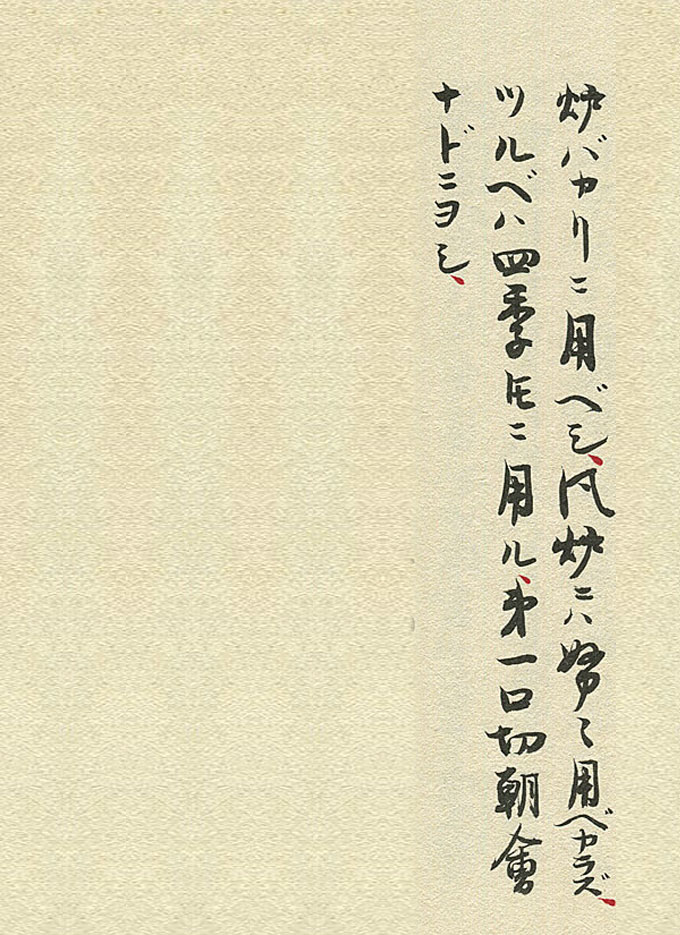 炉バカリニ用ベシ、風炉ニハ努〻用ベカラズ、
ツルベハ四季トモニ用ル、第一口切朝會
ナドニヨシ、